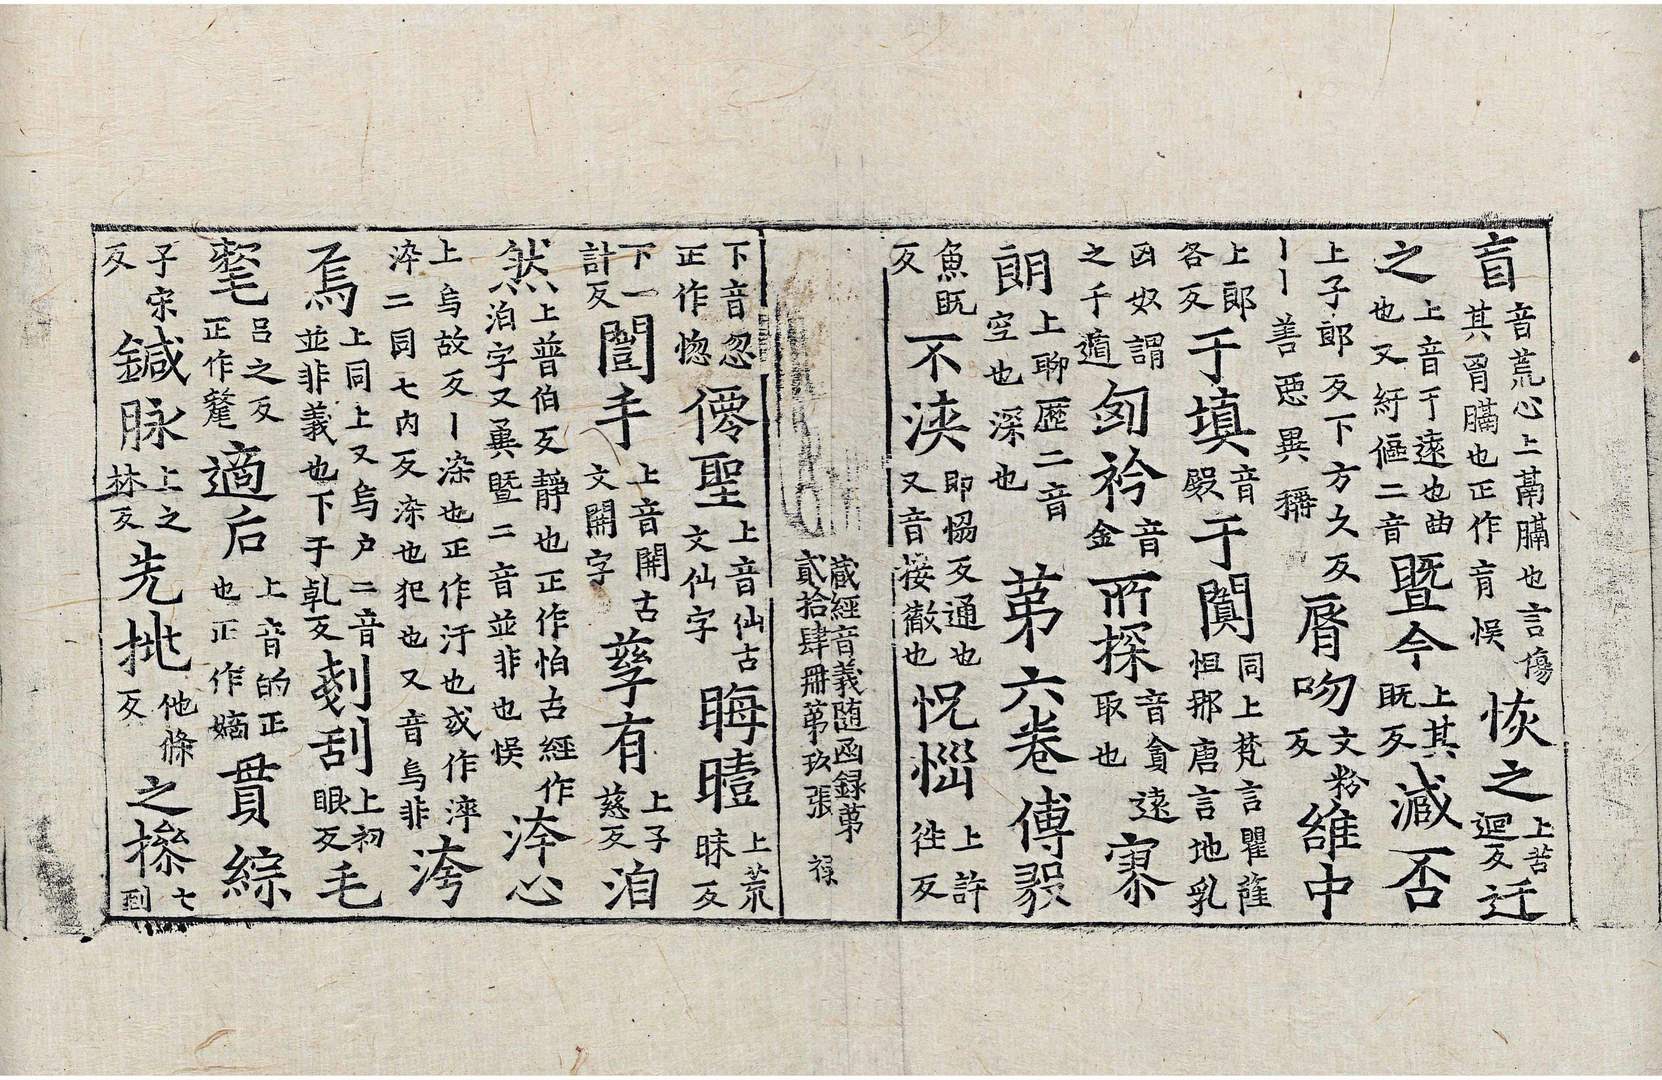 盲音荒心上鬲膈也言傷其胷膈也正作肓悞恢之上苦迴反迂
之上音于遠也曲也又紆傴二音暨今上其既反減否
上子郎反下方久反丨丨善惡異稱脣吻文粉反維中
上郎各反于填音殿于闐同上梵言瞿薩怛那唐言地乳
囟奴謂之千遁匈衿音金所探音貪遠取也寥
朗上聊歷二音空也深也第六卷傅毅
魚既反不浹即恊反通也又音接徹也怳惱上許往反
藏經音義随函録第貳拾肆冊第玖張 禄
下音忽正作惚僊聖上音仙古文仙字晦曀上荒昧反
下一計反闓手上音開古文開字孳有上子慈反洎
然上普伯反靜也正作怕古經作洎字又冀暨二音並非也悞洿心
上烏故反丨染也正作汙也或作滓淬二同七内反染也犯也又音烏非洿
焉上同上又烏户二音並非義也下于乹反剗刮上初眼反毛
氂吕之反正作氂適后上音的正也正作嫡貫綜
子宋反鍼脉上之林反先挑他條反之㯥七到